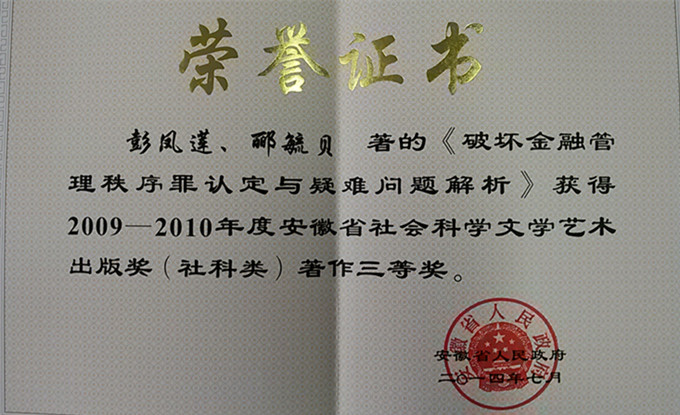 荣誉证书
彭凤莲、郦毓贝 著的《破坏金融管
理秩序罪认定与疑难问题解析》获得
2009—2010年度安徽省社会科学文学艺术
出版奖(社科类)著作三等奖。
安徽省人民政府
安徽省人民政府
二〇一四年七月